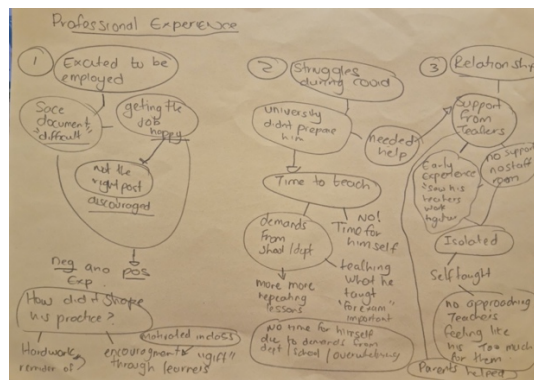 Professional Experience
1
Excited to be
employed
Sace
document
"difficult"
geting the
Job
happy
not the
right post
discouraged
neg and pos
Exp.
How did it shape
his practice?
Hardwork
reminder of
motivated in class
encouragment "gift"
through learners
2
Struggles
during covid
University
didnt prepare
him
needed
help
Time to teach
demands
from
school/dept
No!
Time for
himself
more more
repeating
lessons
teaching
what he
taught
"for exam"
important
no time for himself
due to demands from
dept/school/overwhelming
3
Relationship
Support
from
Teachers
Early
Experience
"saw his
teachers
work
together
no support
no staff
room
Isolated
Self taught
no approaching
Teachers
feeling like
his too much
for them
Parents helped